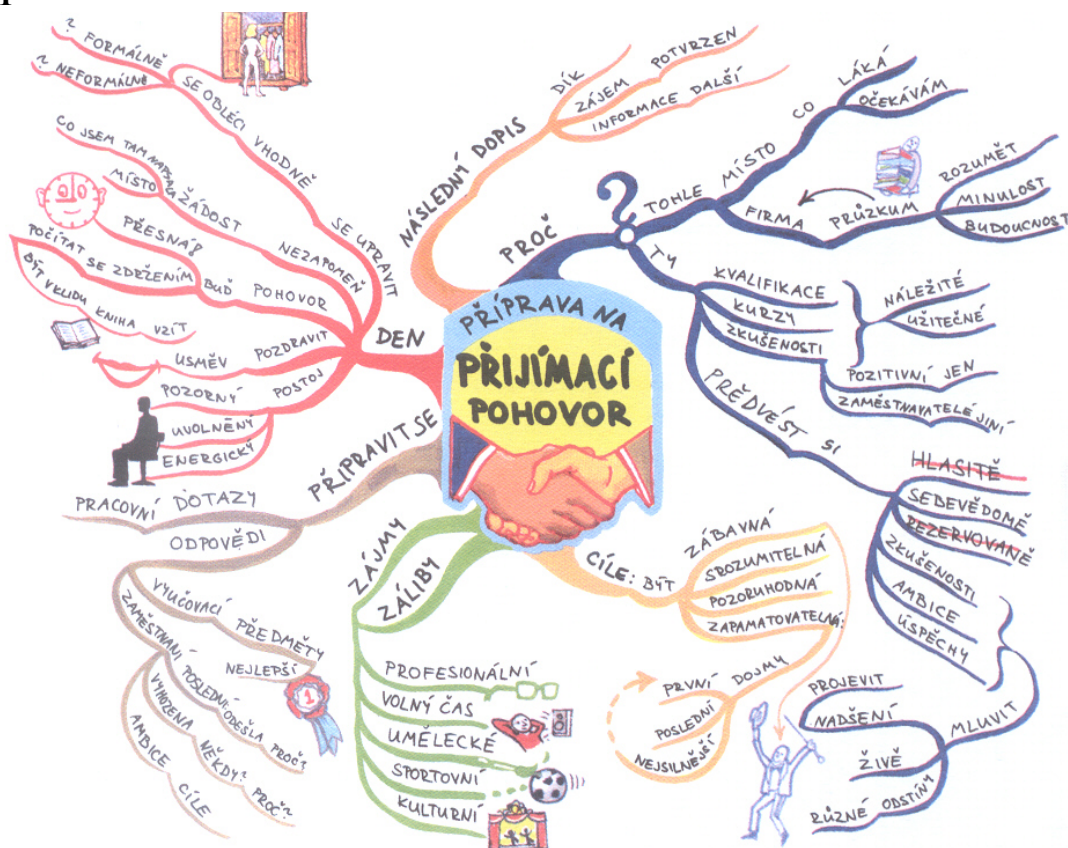 PŘÍPRAVA NA
PŘIJÍMACÍ
POHOVOR
NÁSLEDNÝ DOPIS
DÍK
ZÁJEM POTVRZEN
INFORMACE DALŠÍ
PROČ
?
TOHLE MÍSTO
CO
LÁKÁ
OČEKÁVÁM
FIRMA PRŮZKUM
ROZUMĚT
MINULOST
BUDOUCNOST
TY
KVALIFIKACE
KURZY
ZKUŠENOSTI
NÁLEŽITÉ
UŽITEČNÉ
POZITIVNÍ JEN
ZAMĚSTNAVATELÉ JINÍ
PŘEDVÉST SI
HLASITĚ
SEBEVĚDOMĚ
REZERVOVANĚ
ZKUŠENOSTI
AMBICE
ÚSPĚCHY
MLUVIT
PROJEVIT
NADŠENÍ
ŽIVĚ
RŮZNÉ ODSTÍNY
CÍLE: BÝT
ZÁBAVNÁ
SROZUMITELNÁ
POZORUHODNÁ
ZAPAMATOVATELNÁ:
DOJMY
PRVNÍ
POSLEDNÍ
NEJSILNĚJŠÍ
ZÁJMY
ZÁLIBY
PROFESIONÁLNÍ
VOLNÝ ČAS
UMĚLECKÉ
SPORTOVNÍ
KULTURNÍ
PŘIPRAVIT SE
PRACOVNÍ DOTAZY
ODPOVĚDI
VYUČOVACÍ PŘEDMĚTY
NEJLEPŠÍ
1
ZAMĚSTNÁNÍ
POSLEDNÍ: ODEŠLA PROČ?
VYHOZENA NĚKDY? PROČ?
AMBICE CÍLE
DEN
SE UPRAVIT
SE OBLÉCI VHODNĚ
? FORMÁLNĚ
? NEFORMÁLNĚ
NEZAPOMEŇ
ŽÁDOST
CO JSEM TAM NAPSALA
MÍSTO
POHOVOR
BUĎ
PŘESNÁ!
POČÍTAT SE ZDRŽENÍM
BÝT V KLIDU
KNIHA VZÍT
POZDRAVIT
USMĚV
POSTOJ
POZORNÝ
UVOLNĚNÝ
ENERGICKÝ